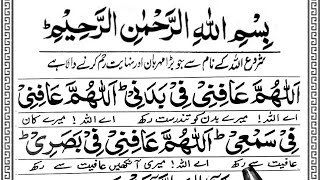 بِسْمِ اللهِ الرَّحْمٰنِ الرَّحِيْمِ
شروع اللہ کے نام سے جو بڑا مہربان اور نہایت رحم کرنے والا ہے
اَللّٰهُمَّ عَافِنِيْ فِيْ بَدَنِيْ اَللّٰهُمَّ عَافِنِيْ
اے اللہ! میرے بدن کو تندرست رکھ اے اللہ! میرے کان
فِيْ سَمْعِيْ اَللّٰهُمَّ عَافِنِيْ فِيْ بَصَرِيْ
عافیت سے رکھ اے اللہ! میری آنکھیں عافیت سے رکھ